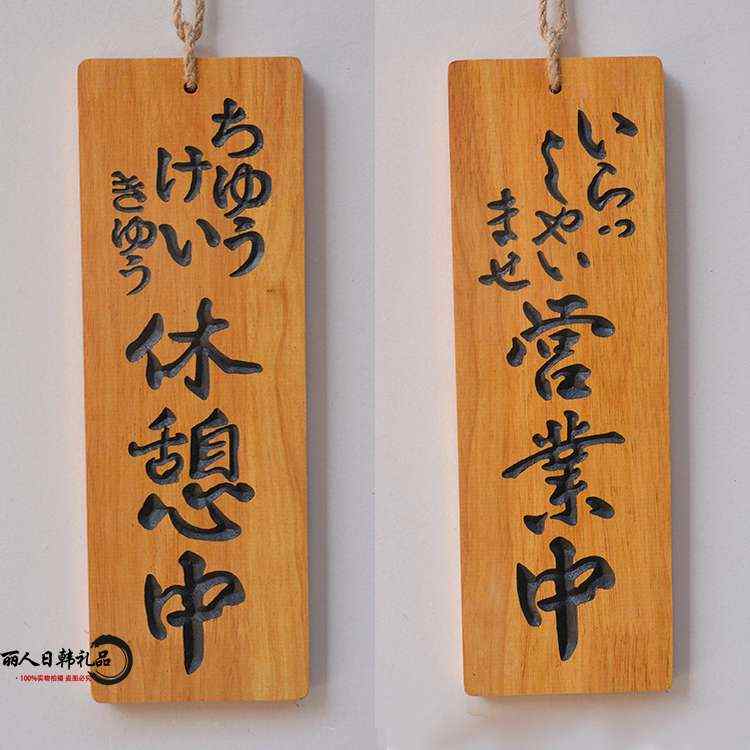 ちゅう
けい
きゅう
休憩中
いらっ
しゃい
ませ
営業中
丽人日韩礼品
·100%实物拍摄 盗图必究